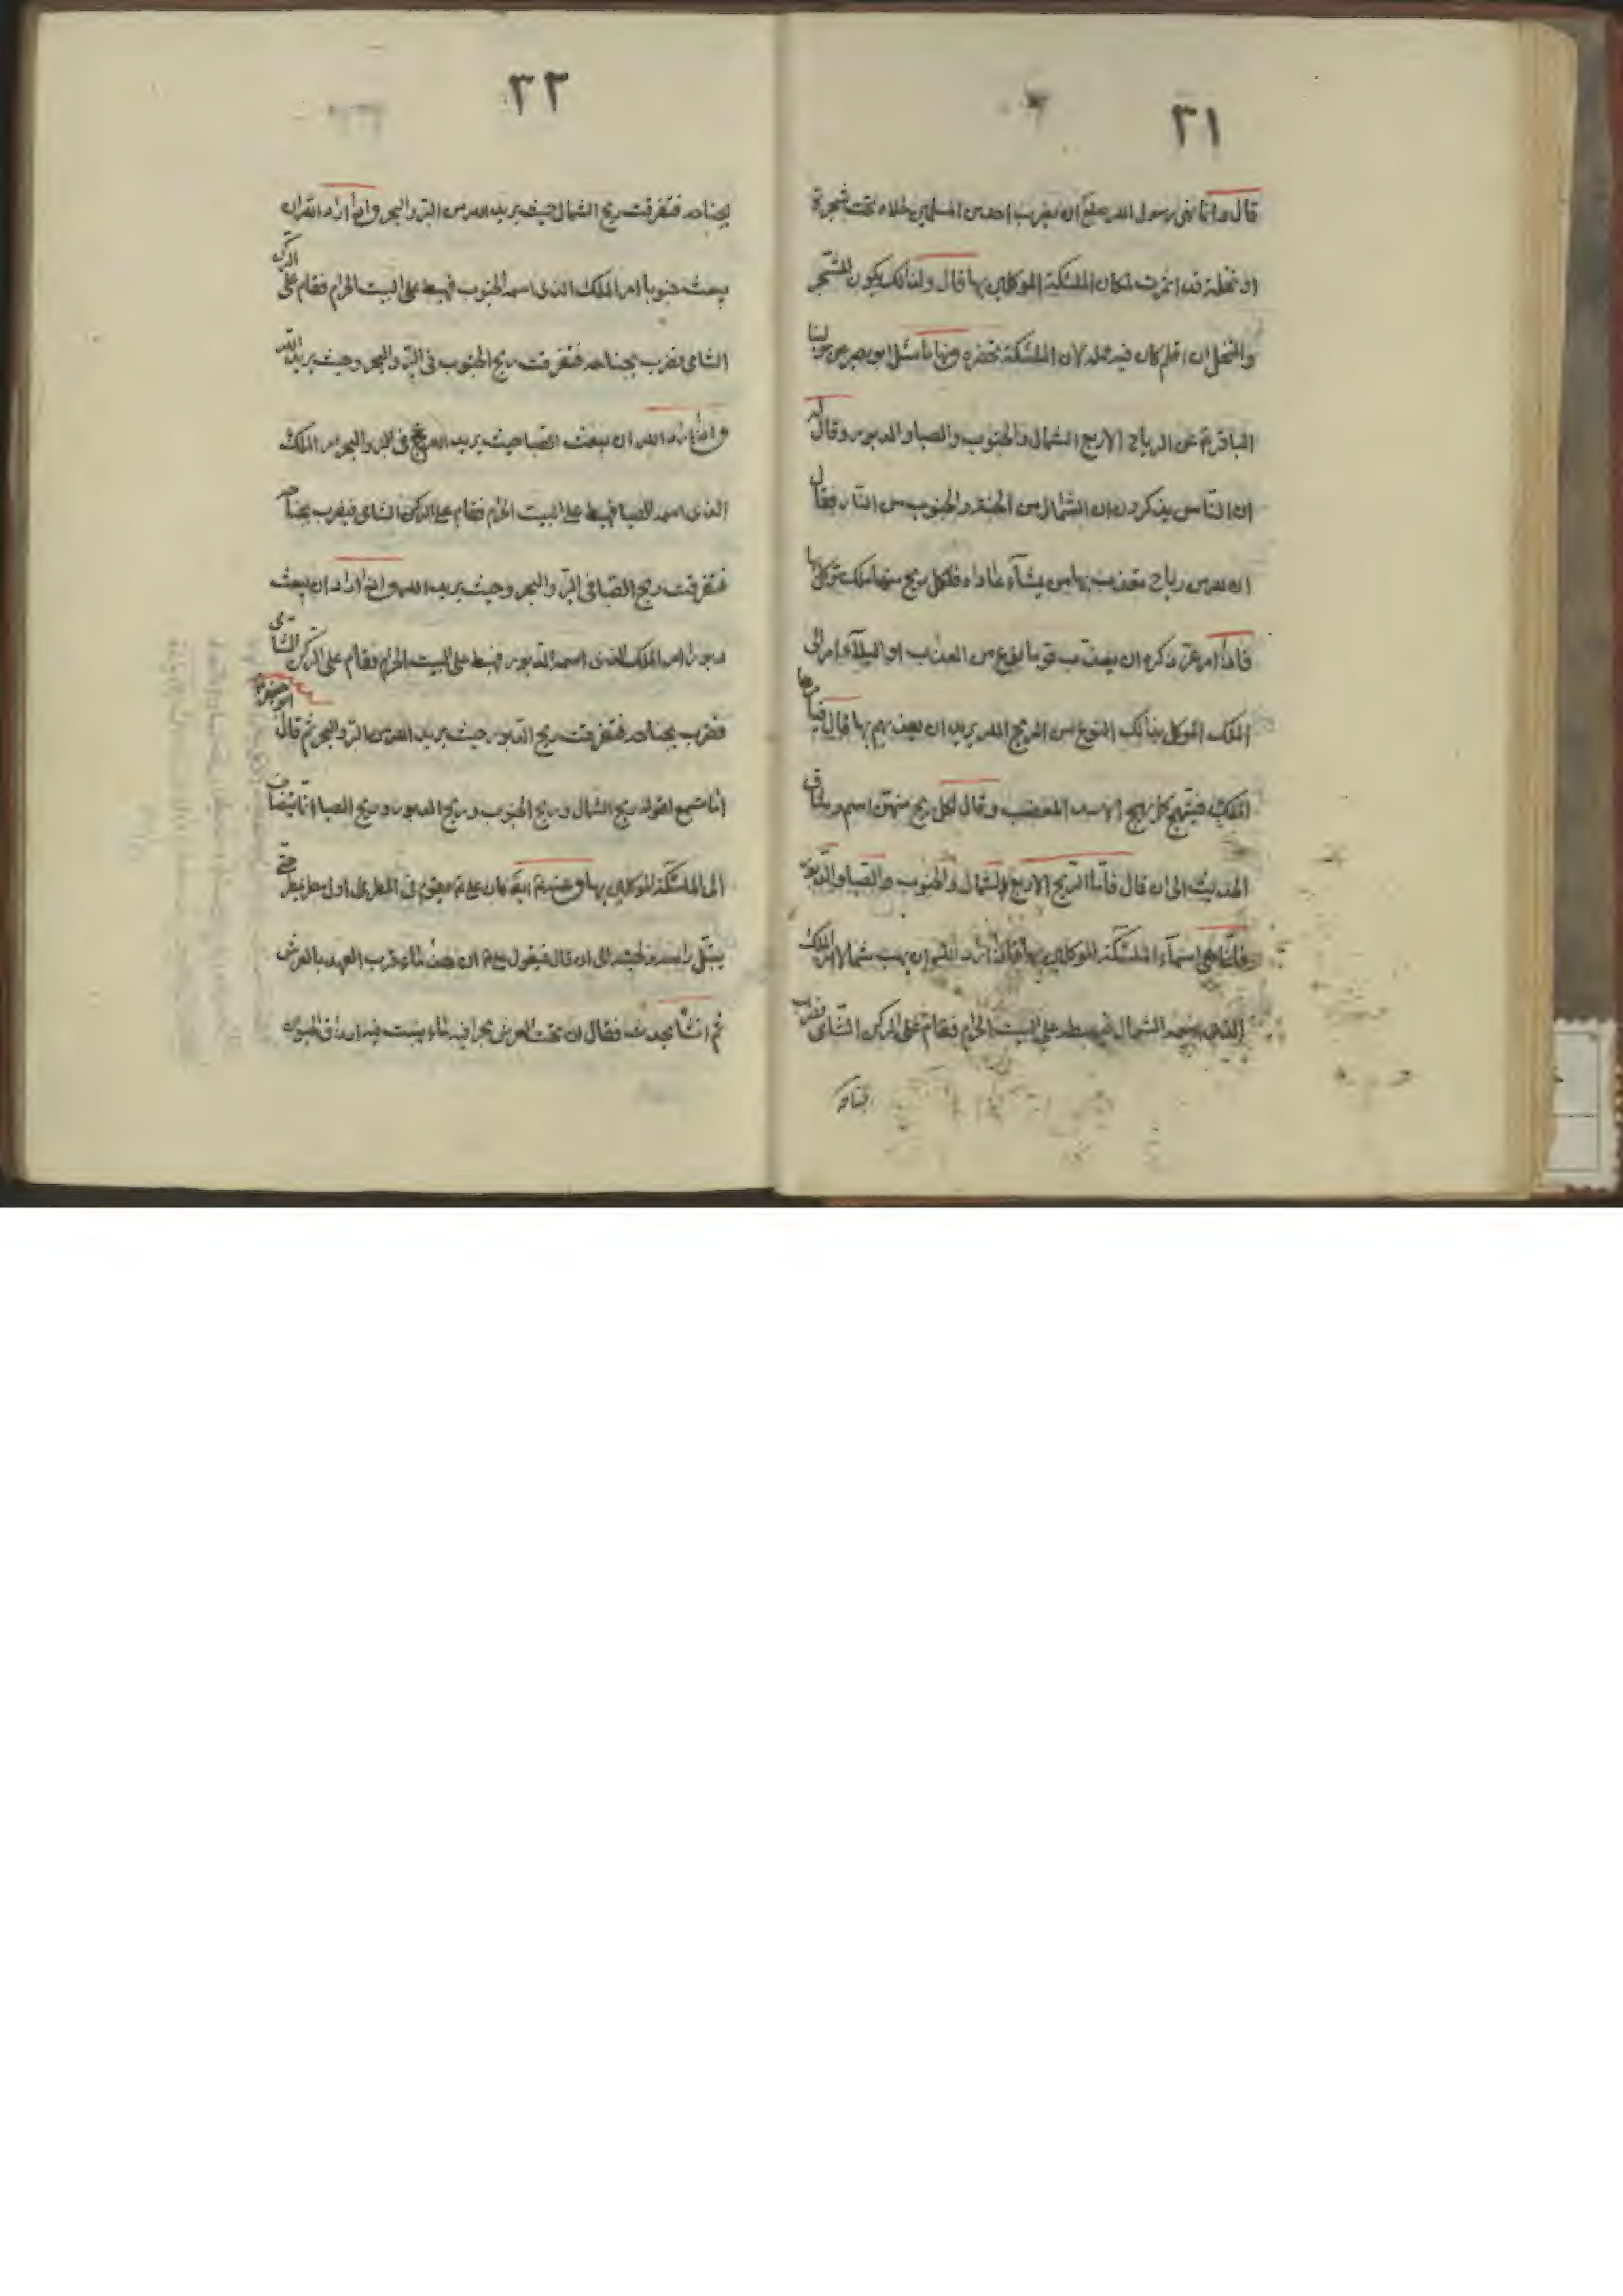 ٣١
قال وانما نهى رسول الله صلع ان يضرب احد من المسلمين خلاه تحت شجرة
او نخلة قد اثمرت لمكان الملئكة الموكلين بها قال ولذلك يكون للشجر
والنخل انسا اذا كان فيه حمله لان الملئكة تحضره ومنها ما سئل ابو بصير عن مولينا
الباقر ع عن الرياح الاربع الشمال والجنوب والصبا والدبور وقال له
ان الناس يذكرون ان الشمال من الجنة والجنوب من النار فقال
ان لله من رياح يعذب بها من يشآء ممن عصاه فلكل ريح منها ملك موكل بها
فاذا امر عز ذكره ان يعذب قوما بنوع من العذاب او البلآء امر الى
الملك الموكل بذلك النوع من الريح الذي يريد ان يعذبهم بها قال فيأمرها
الملك فتهيج كما يهيج الاسد المغضب وقال لكل ريح منهن اسم وساق
الحديث الى ان قال فاما الريح الاربع الشمال والجنوب والصبا والدبور
فانما هي اسمآء الملئكة الموكلين بها فاذا اراد الله ان يهب شمالا امر الملك
الذي اسمه الشمال فيهبط على البيت الحرام فقام على الركن الشامي فضرب
بجناحه
٣٢
بجناحه فتفرقت ريح الشمال حيث يريد الله من البر والبحر واذا اراد الله ان
يبعث جنوبا امر الملك الذي اسمه الجنوب فهبط على البيت الحرام فقام على الركن
الشامي فضرب بجناحه فتفرقت ريح الجنوب في البر والبحر وحيث يريد الله
واذا اراد الله ان يبعث الصبا حيث يريد الله في البر والبحر امر الملك
الذي اسمه الصبا فهبط على البيت الحرام فقام على الركن الشامي فيضرب بجناحه
فتفرقت ريح الصبا في البر والبحر وحيث يريد الله واذا اراد ان يبعث
دبورا امر الملك الذي اسمه الدبور فهبط على البيت الحرام فقام على الركن الشامي
فضرب بجناحه فتفرقت ريح الدبور حيث يريد الله من البر والبحر ثم قال ابو جعفر ع
اما تسمع لقوله ريح الشمال وريح الجنوب وريح الدبور وريح الصبا انما تضاف
الى الملئكة الموكلين بها وعنهم ع كان علي ع يقوم في المطر اول ما يمطر حتى
يبتل راسه ولحيته الى ان قال فيقول ع ان هذا ماء قرب العهد بالعرش
ثم انشأ يحدث فقال ان تحت العرش بحرا فيه ماء ينبت فيه ارزاق الحيوان